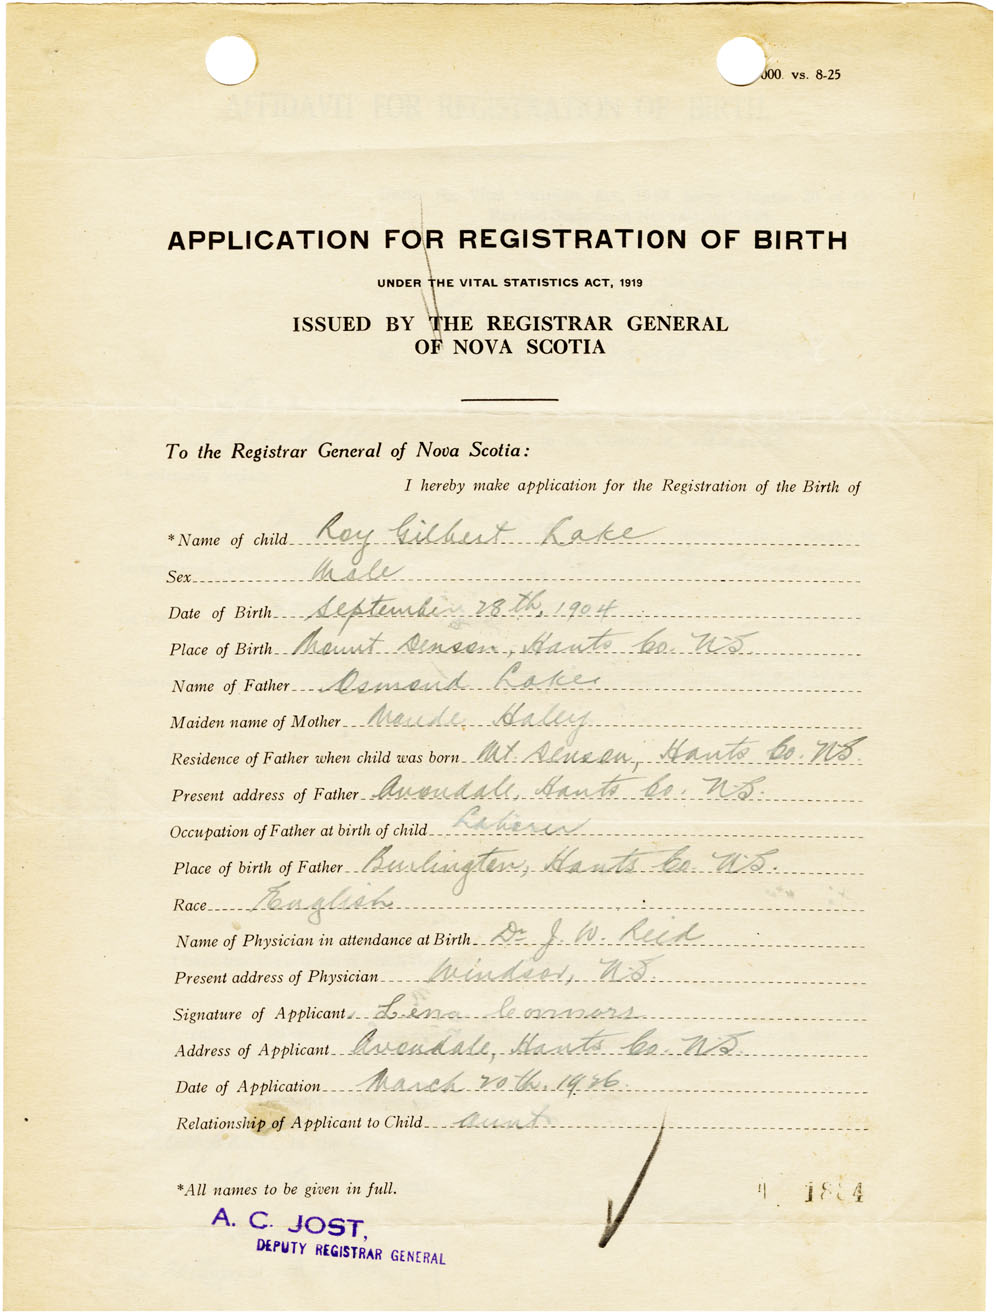 000. vs. 8-25
AFFIDAVIT FOR REGISTRATION OF BIRTH
APPLICATION FOR REGISTRATION OF BIRTH
UNDER THE VITAL STATISTICS ACT, 1919
ISSUED BY THE REGISTRAR GENERAL
OF NOVA SCOTIA
To the Registrar General of Nova Scotia:
I hereby make application for the Registration of the Birth of
*Name of child Roy Gilbert Lake
Sex Male
Date of Birth September 28th, 1904
Place of Birth Mount Denson, Hants Co. N.S.
Name of Father Osmond Lake
Maiden name of Mother Maude Haley
Residence of Father when child was born Mt. Denson, Hants Co. N.S.
Present address of Father Avondale, Hants Co. N.S.
Occupation of Father at birth of child Laborer
Place of birth of Father Burlington, Hants Co. N.S.
Race English
Name of Physician in attendance at Birth Dr J. W. Reid
Present address of Physician Windsor, N.S.
Signature of Applicant Lena Connors
Address of Applicant Avondale, Hants Co. N.S.
Date of Application March 20th. 1926.
Relationship of Applicant to Child aunt
*All names to be given in full.
A. C. JOST,
DEPUTY REGISTRAR GENERAL